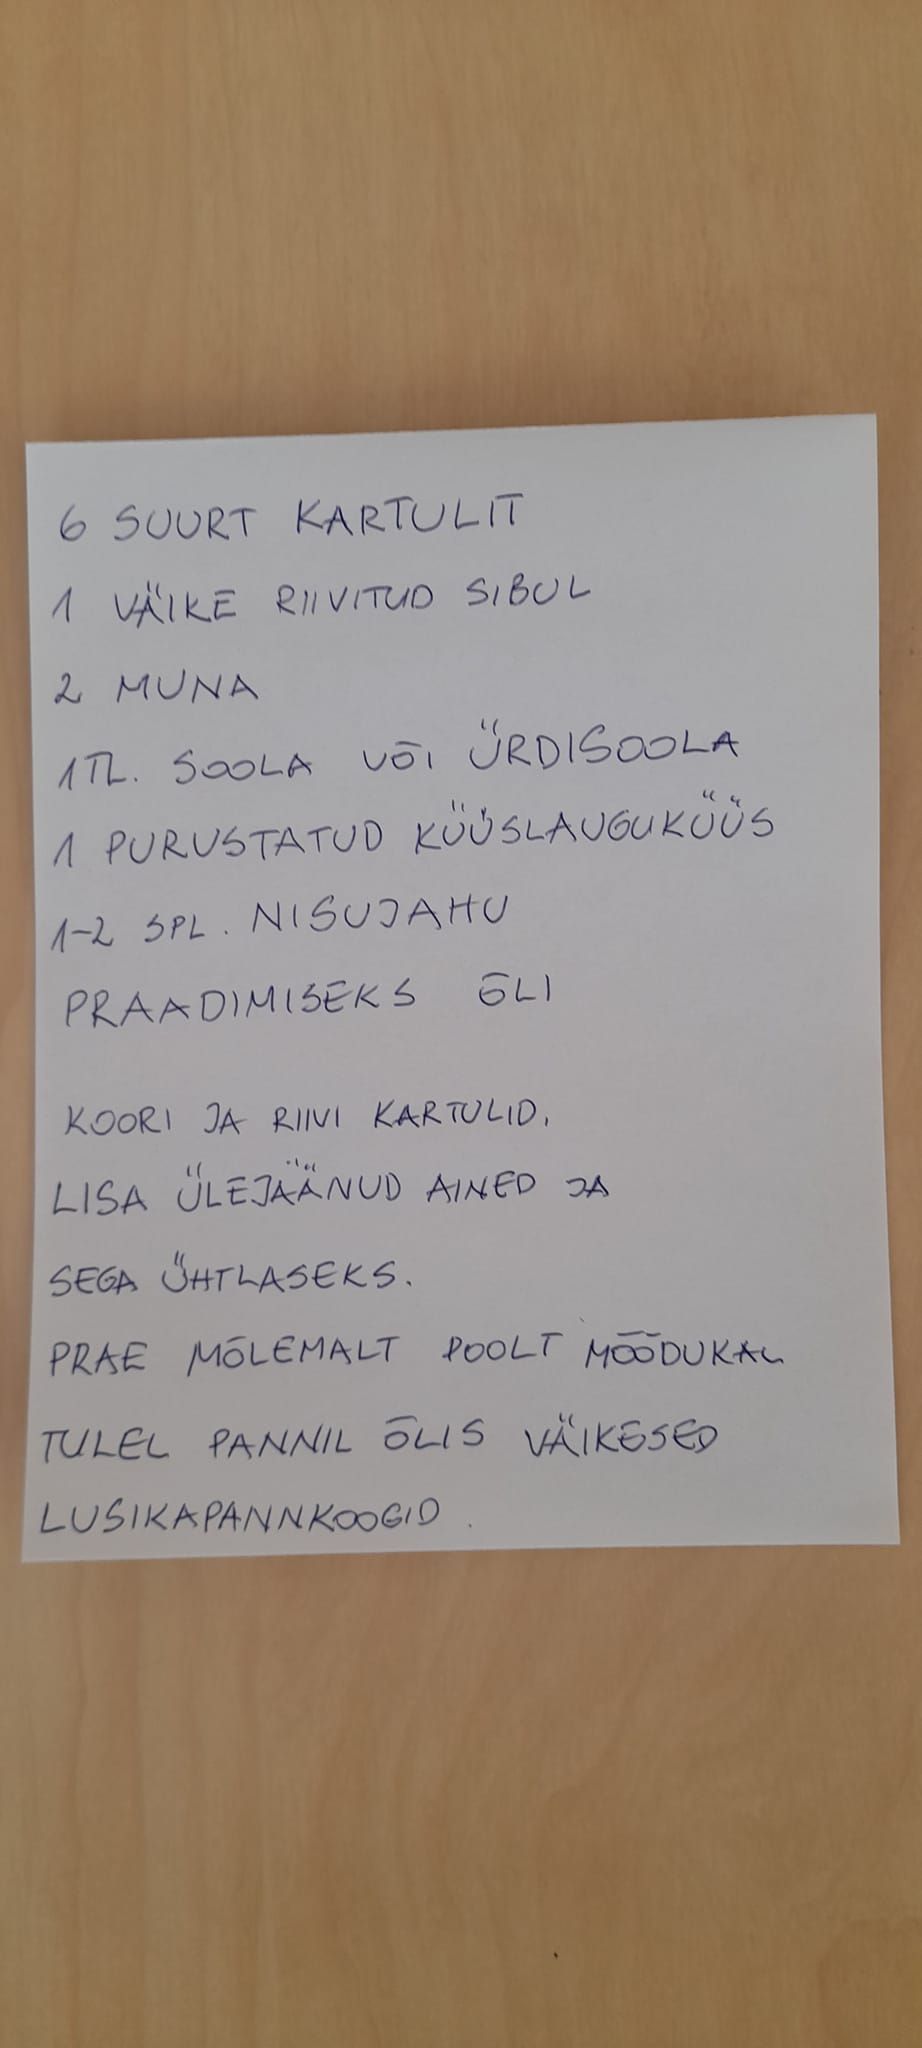 6 SUURT KARTULIT
1 VÄIKE RIIVITUD SIBUL
2 MUNA
1TL. SOOLA VÕI ÜRDISOOLA
1 PURUSTATUD KÜÜSLAUGUKÜÜS
1-2 SPL. NISUJAHU
PRAADIMISEKS ÕLI
KOORI JA RIIVI KARTULID.
LISA ÜLEJÄÄNUD AINED JA
SEGA ÜHTLASEKS.
PRAE MÕLEMALT POOLT MÕÕDUKAL
TULEL PANNIL ÕLIS VÄIKESED
LUSIKAPANNKOOGID.